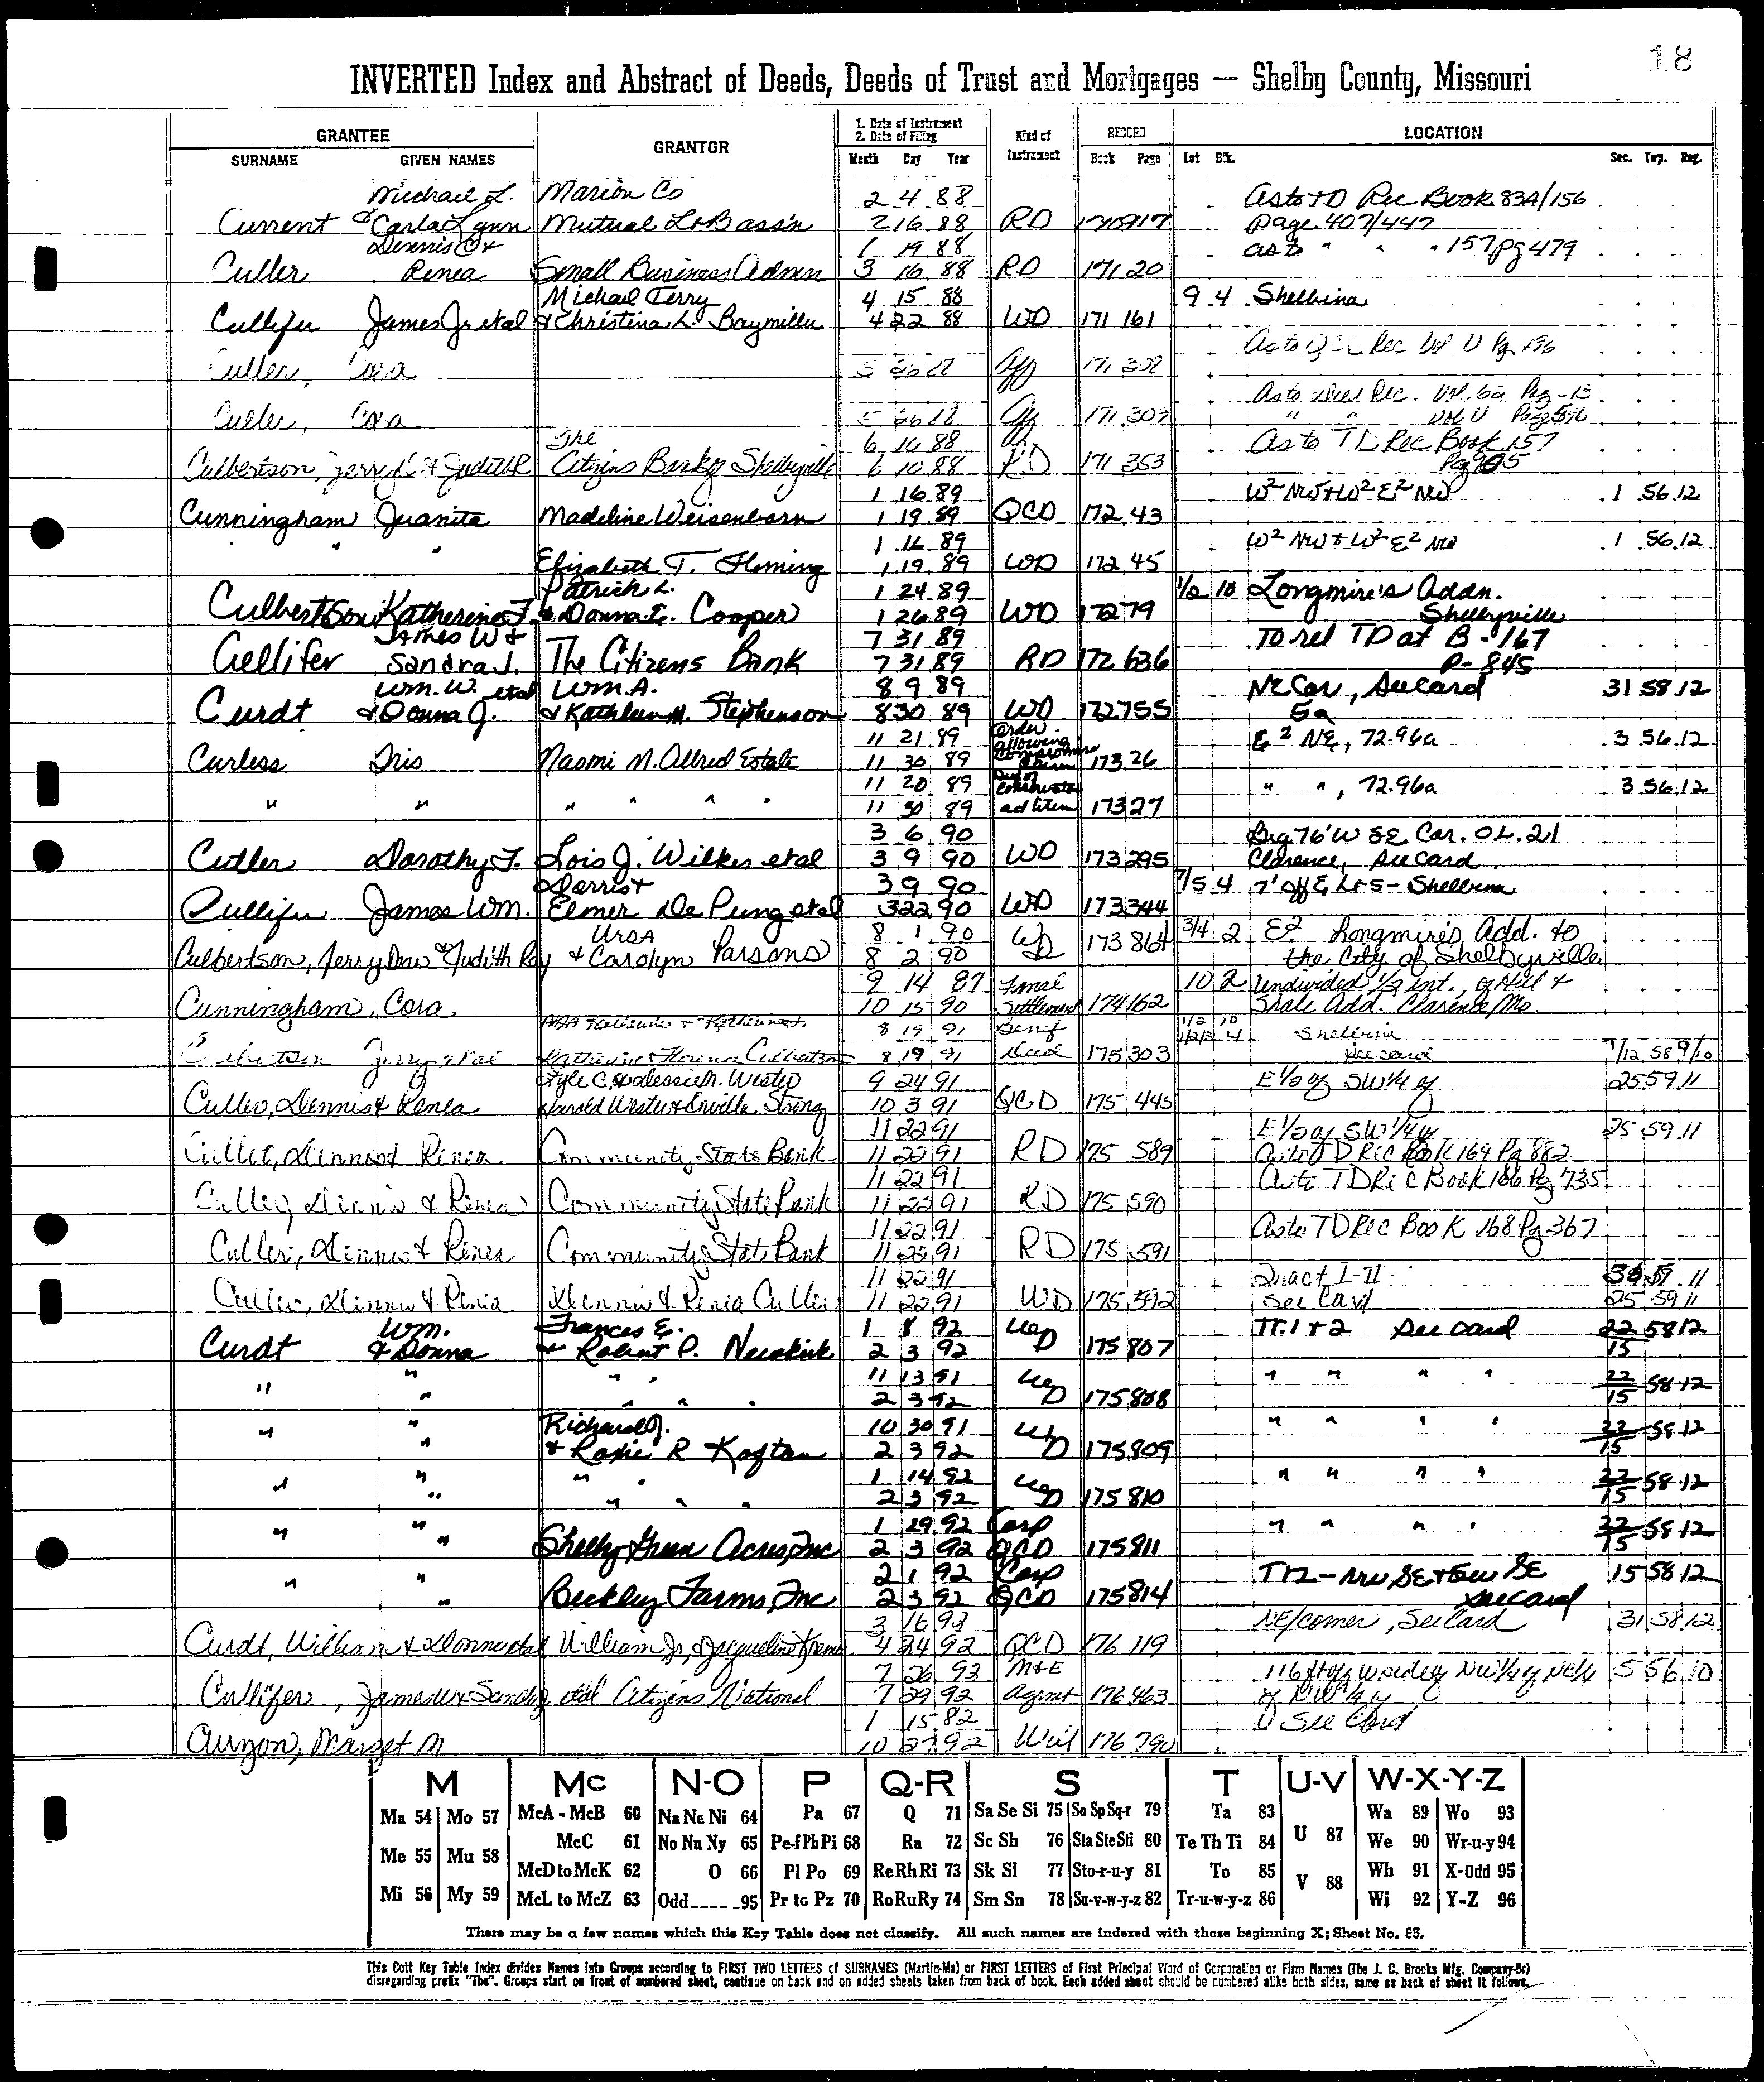 18
INVERTED Index and Abstract of Deeds, Deeds of Trust and Mortgages — Shelby County, Missouri
GRANTEE GRANTOR 1. Date of Instrument 2. Date of Filing Kind of Instrument RECORD LOCATION
SURNAME GIVEN NAMES Month Day Year Book Page Lot Blk. Sec. Twp. Rng.
Michael L. Marion Co 2 4 88 As to TD Rec Book 83A/156
Current & Carla Lynn Mutual L&B ass'n 2 16 88 RD 170 917 page 407/447
Dennis C & 1 19 88 as to " " " 157 pg 479
Culler Renea Small Business Admn 3 16 88 RD 171 20
Michael Terry 4 15 88 9 4 Shelbina
Cullifer James Jr etal & Christina L. Baymiller 4 22 88 WD 171 161
As to QCD Rec Vol U Pg 496
Culler, Cora 5 26 88 Aff 171 308
As to deed Rec. Vol. 62 Pag-13
Culler, Cora 5 26 88 Aff 171 309 " " Vol U Pag 596
The 6 10 88 As to TD Rec Book 157
Culbertson, Jerry D. & Judith R Citizens Bank of Shelbyville 6 10 88 RD 171 353 Pg 905
1 16 89 W² NW & W² E² NW 1 56 12
Cunningham Juanita Madeline Weisenborn 1 19 89 QCD 172 43
" " 1 16 89 W² NW & W² E² NW 1 56 12
Elizabeth T. Fleming 1 19 89 WD 172 45
Patrick L. 1 24 89 1/2 10 Longmire's Addn.
Culbertson Katherine F. & Donna E. Cooper 1 26 89 WD 172 79 Shelbyville
James W & 7 31 89 To rel TD at B-167
Cullifer Sandra J. The Citizens Bank 7 31 89 RD 172 636 P-845
Wm. W. etal Wm. A. 8 9 89 NE Cor, See card 31 58 12
Curdt & Donna J. & Kathleen M. Stephenson 8 30 89 WD 172 755 5a
11 21 89 Order allowing E² NE, 72.96a 3 56 12
Curless Iris Naomi M. Allred Estate 11 30 89 173 26
11 20 89 " ", 72.96a 3 56 12
" " " " " " 11 30 89 ad litem 173 27
3 6 90 Beg 76' W SE Cor. OL. 21
Cutler Dorothy F. Lois J. Wilkes etal 3 9 90 WD 173 295 Clarence, See card
Dorris & 3 9 90 7/5 4 7' off E Lt 5 - Shelbina
Cullifer James Wm. Elmer De Pung etal 3 22 90 WD 173 344
Ursa 8 1 90 3/4 2 E² Longmire's Add. to
Culbertson, Jerry Dow & Judith Ray & Carolyn Parsons 8 2 90 WD 173 864 the City of Shelbyville
9 14 87 Final 10 2 Undivided 1/2 int., of Hill &
Cunningham, Cora. 10 15 90 Settlement 174 162 Shale Add. Clarence, Mo.
8 19 91 Benef 1/2 10 Shelbina
Culbertson Jerry etal Katherine Florena Culbertson 8 19 91 Deed 175 303 See card
Lyle C. & Dessie M. Wester 9 24 91 E 1/2 of SW 1/4 of 25 59 11
Culler, Dennis & Renea Harold Wester & Orville Strong 10 3 91 QCD 175 445
11 22 91 E 1/2 of SW 1/4 of 25 59 11
Culler, Dennis & Renea Community State Bank 11 22 91 RD 175 589 As to TD Rec Book 164 Pg 882
11 22 91 As to TD Rec Book 166 Pg 735
Culler, Dennis & Renea Community State Bank 11 22 91 RD 175 590
11 22 91 As to TD Rec Book 168 Pg 367
Culler, Dennis & Renea Community State Bank 11 22 91 RD 175 591
11 22 91 Tract I-II 36 59 11
Culler, Dennis & Renea Dennis & Renea Culler 11 22 91 WD 175 592 See Card 25 59 11
Wm. Frances E. 1 8 92 Tr. 1 & 2 See card 22 58 12
Curdt & Donna & Robert P. Newkirk 2 3 92 WD 175 807 15
" " " " 11 13 91 " " " " 22 58 12
" " " " 2 3 92 WD 175 808 15
" " Richard J. 10 30 91 " " " " 22 58 12
" & Roxie R Kaftan 2 3 92 WD 175 809 15
" " " " 1 14 92 " " " " 22 58 12
" " " " 2 3 92 WD 175 810 15
" " 1 29 92 Corp " " " " 22 58 12
" Shelby Green Acres, Inc 2 3 92 QCD 175 811 15
" " 2 1 92 Corp Tr 2 - NW SE & SW SE 15 58 12
" Beckley Farms, Inc 2 3 92 QCD 175 814 See card
3 16 92 NE/corner, See Card 31 58 12
Curdt, William & Donna etal William Jr, & Jacqueline 4 24 92 QCD 176 119
7 26 93 M&E 116 ft off W side of NW 1/4 of NE 1/4 5 56 10
Cullifer, James W & Sandra etal Citizens National 7 29 92 Agrmt 176 463 of NW 1/4 of
1 15 82 See Card
Curzon, Marget M 10 27 92 Will 176 790
M Mc N-O P Q-R S T U-V W-X-Y-Z
Ma 54 Mo 57 McA - McB 60 Na Ne Ni 64 Pa 67 Q 71 Sa Se Si 75 So Sp Sq-r 79 Ta 83 Wa 89 Wo 93
Me 55 Mu 58 McC 61 No Nu Ny 65 Pe-f Ph Pi 68 Ra 72 Sc Sh 76 Sta Ste Sti 80 Te Th Ti 84 U 87 We 90 Wr-u-y 94
McD to McK 62 O 66 Pl Po 69 Re Rh Ri 73 Sk Sl 77 Sto-r-u-y 81 To 85 V 88 Wh 91 X-Odd 95
Mi 56 My 59 McL to McZ 63 Odd-----95 Pr to Pz 70 Ro Ru Ry 74 Sm Sn 78 Su-v-w-y-z 82 Tr-u-w-y-z 86 Wi 92 Y-Z 96
There may be a few names which this Key Table does not classify. All such names are indexed with those beginning X; Sheet No. 95.
This Cott Key Table Index divides Names into Groups according to FIRST TWO LETTERS of SURNAMES (Martin-Ma) or FIRST LETTERS of First Principal Word of Corporation or Firm Names (The J. C. Brocks Mfg. Company-Br)
disregarding prefix "The". Groups start on front of numbered sheet, continue on back and on added sheets taken from back of book. Each added sheet should be numbered alike both sides, same as back of sheet it follows.